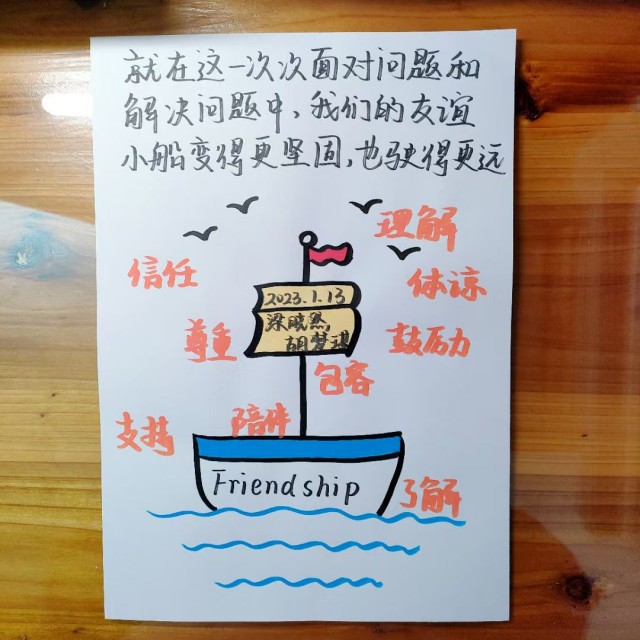 就在这一次次面对问题和
解决问题中，我们的友谊
小船变得更坚固，也驶得更远
理解
信任
体谅
2023.1.13
梁晓然，
胡梦琪
尊重
鼓励
包容
陪伴
支持
Friendship
了解